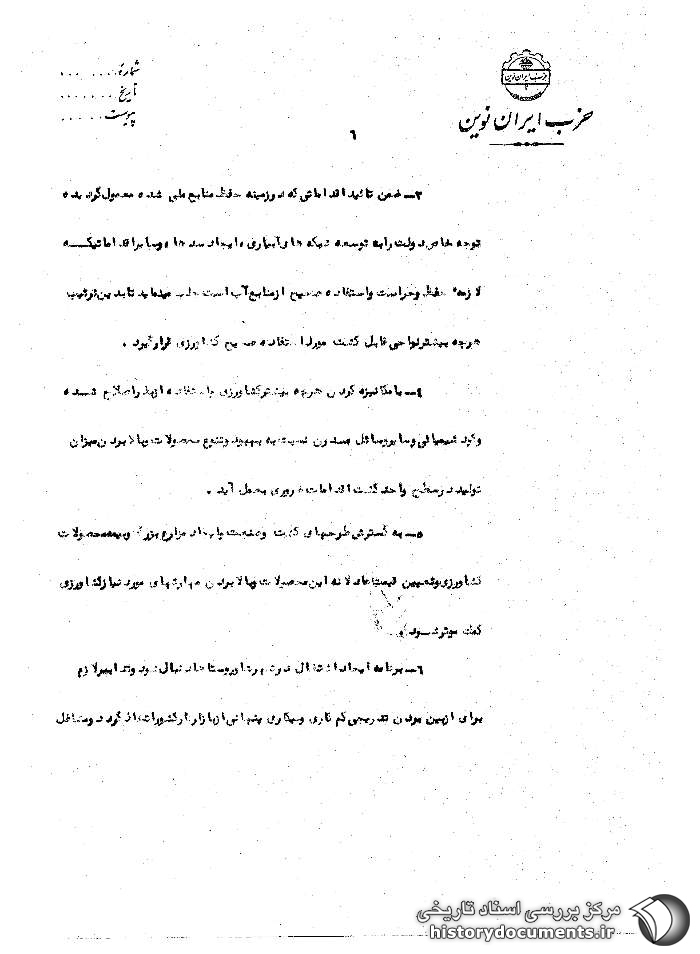 شماره.......
تاریخ.......
پیوست.....
حزب ایران نوین
حزب ایران نوین
٦
۳ـ ضمن تائید اقداماتی که در زمینه حفظ منابع ملی شده معمول گردیده
توجه خاص دولت را به توسعه شبکه های آبیاری و ایجاد سدها و سایر اقداماتیکه
لازمهٔ حفظ وحراست واستفاده صحیح از منابع آب است جلب مینماید تا بدین ترتیب
هرچه بیشتر نواحی قابل کشت مورد استفاده صحیح کشاورزی قرار گیرد .
٤ـ با مکانیزه کردن هرچه بیشتر کشاورزی با استفاده از بذر اصلاح شده
وکود شیمیائی وسایر وسائل مدرن نسبت به بهبود وتنوع محصولات وبالا بردن میزان
تولید در سطح واحد کشت اقدامات ضروری بعمل آید .
٥ـ به گسترش طرحهای کشت وصنعت وایجاد مزارع بزرگ وبیمه محصولات
کشاورزی وتعیین قیمت عادلانه این محصولات وبالا بردن مهارتهای مورد نیاز کشاورزی
کمک موثر شود .
٦ـ برنامه ایجاد اشتغال در شهر و روستا دنبال شود وتدابیر لازم
برای از بین بردن تدریجی کم کاری وبیکاری پنهانی از بازار کار کشور اتخاذ گردد ومشاغل
مرکز بررسی اسناد تاریخی
historydocuments.ir